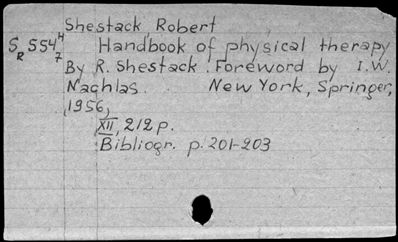 Shestack Robert
S_R 554^4/7 Handbook of physical therapy
By R. Shestack. Foreword by I.W.
Nachlas. New York, Springer,
(1956)
XII, 212 p.
Bibliogr. p. 201-203